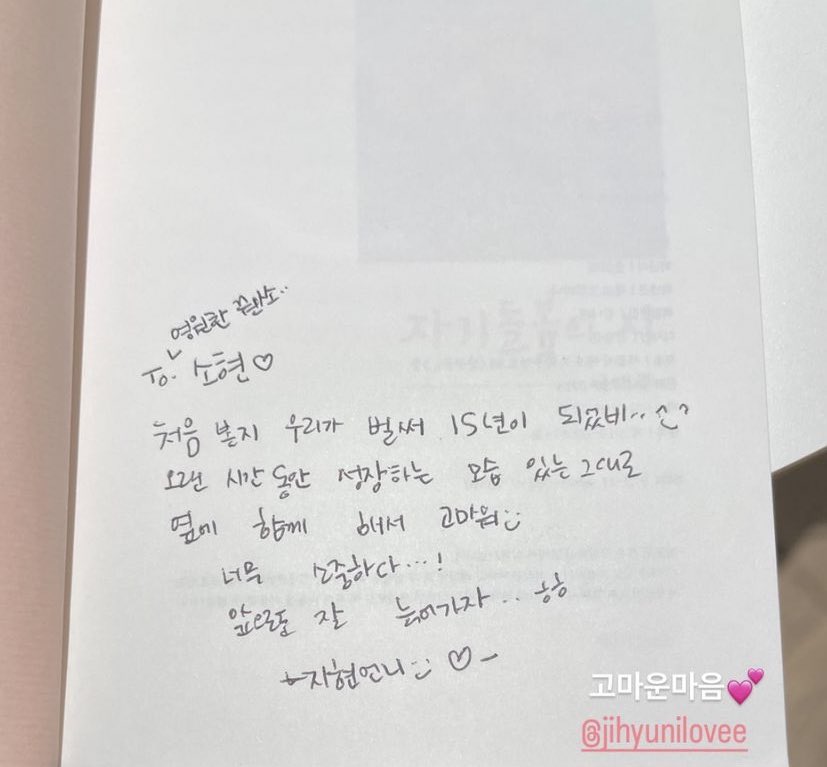 영원한
To. 소현♡
처음 본지 우리가 벌써 15년이 되었네..
오랜 시간동안 성장하는 모습 있는그대로
옆에 함께 해서 고마워:)
너무 소중하다...!
앞으로도 잘 늙어가자.. ㅎㅎ
-지현언니:) ♡-
고마운마음💕
@jihyunilovee